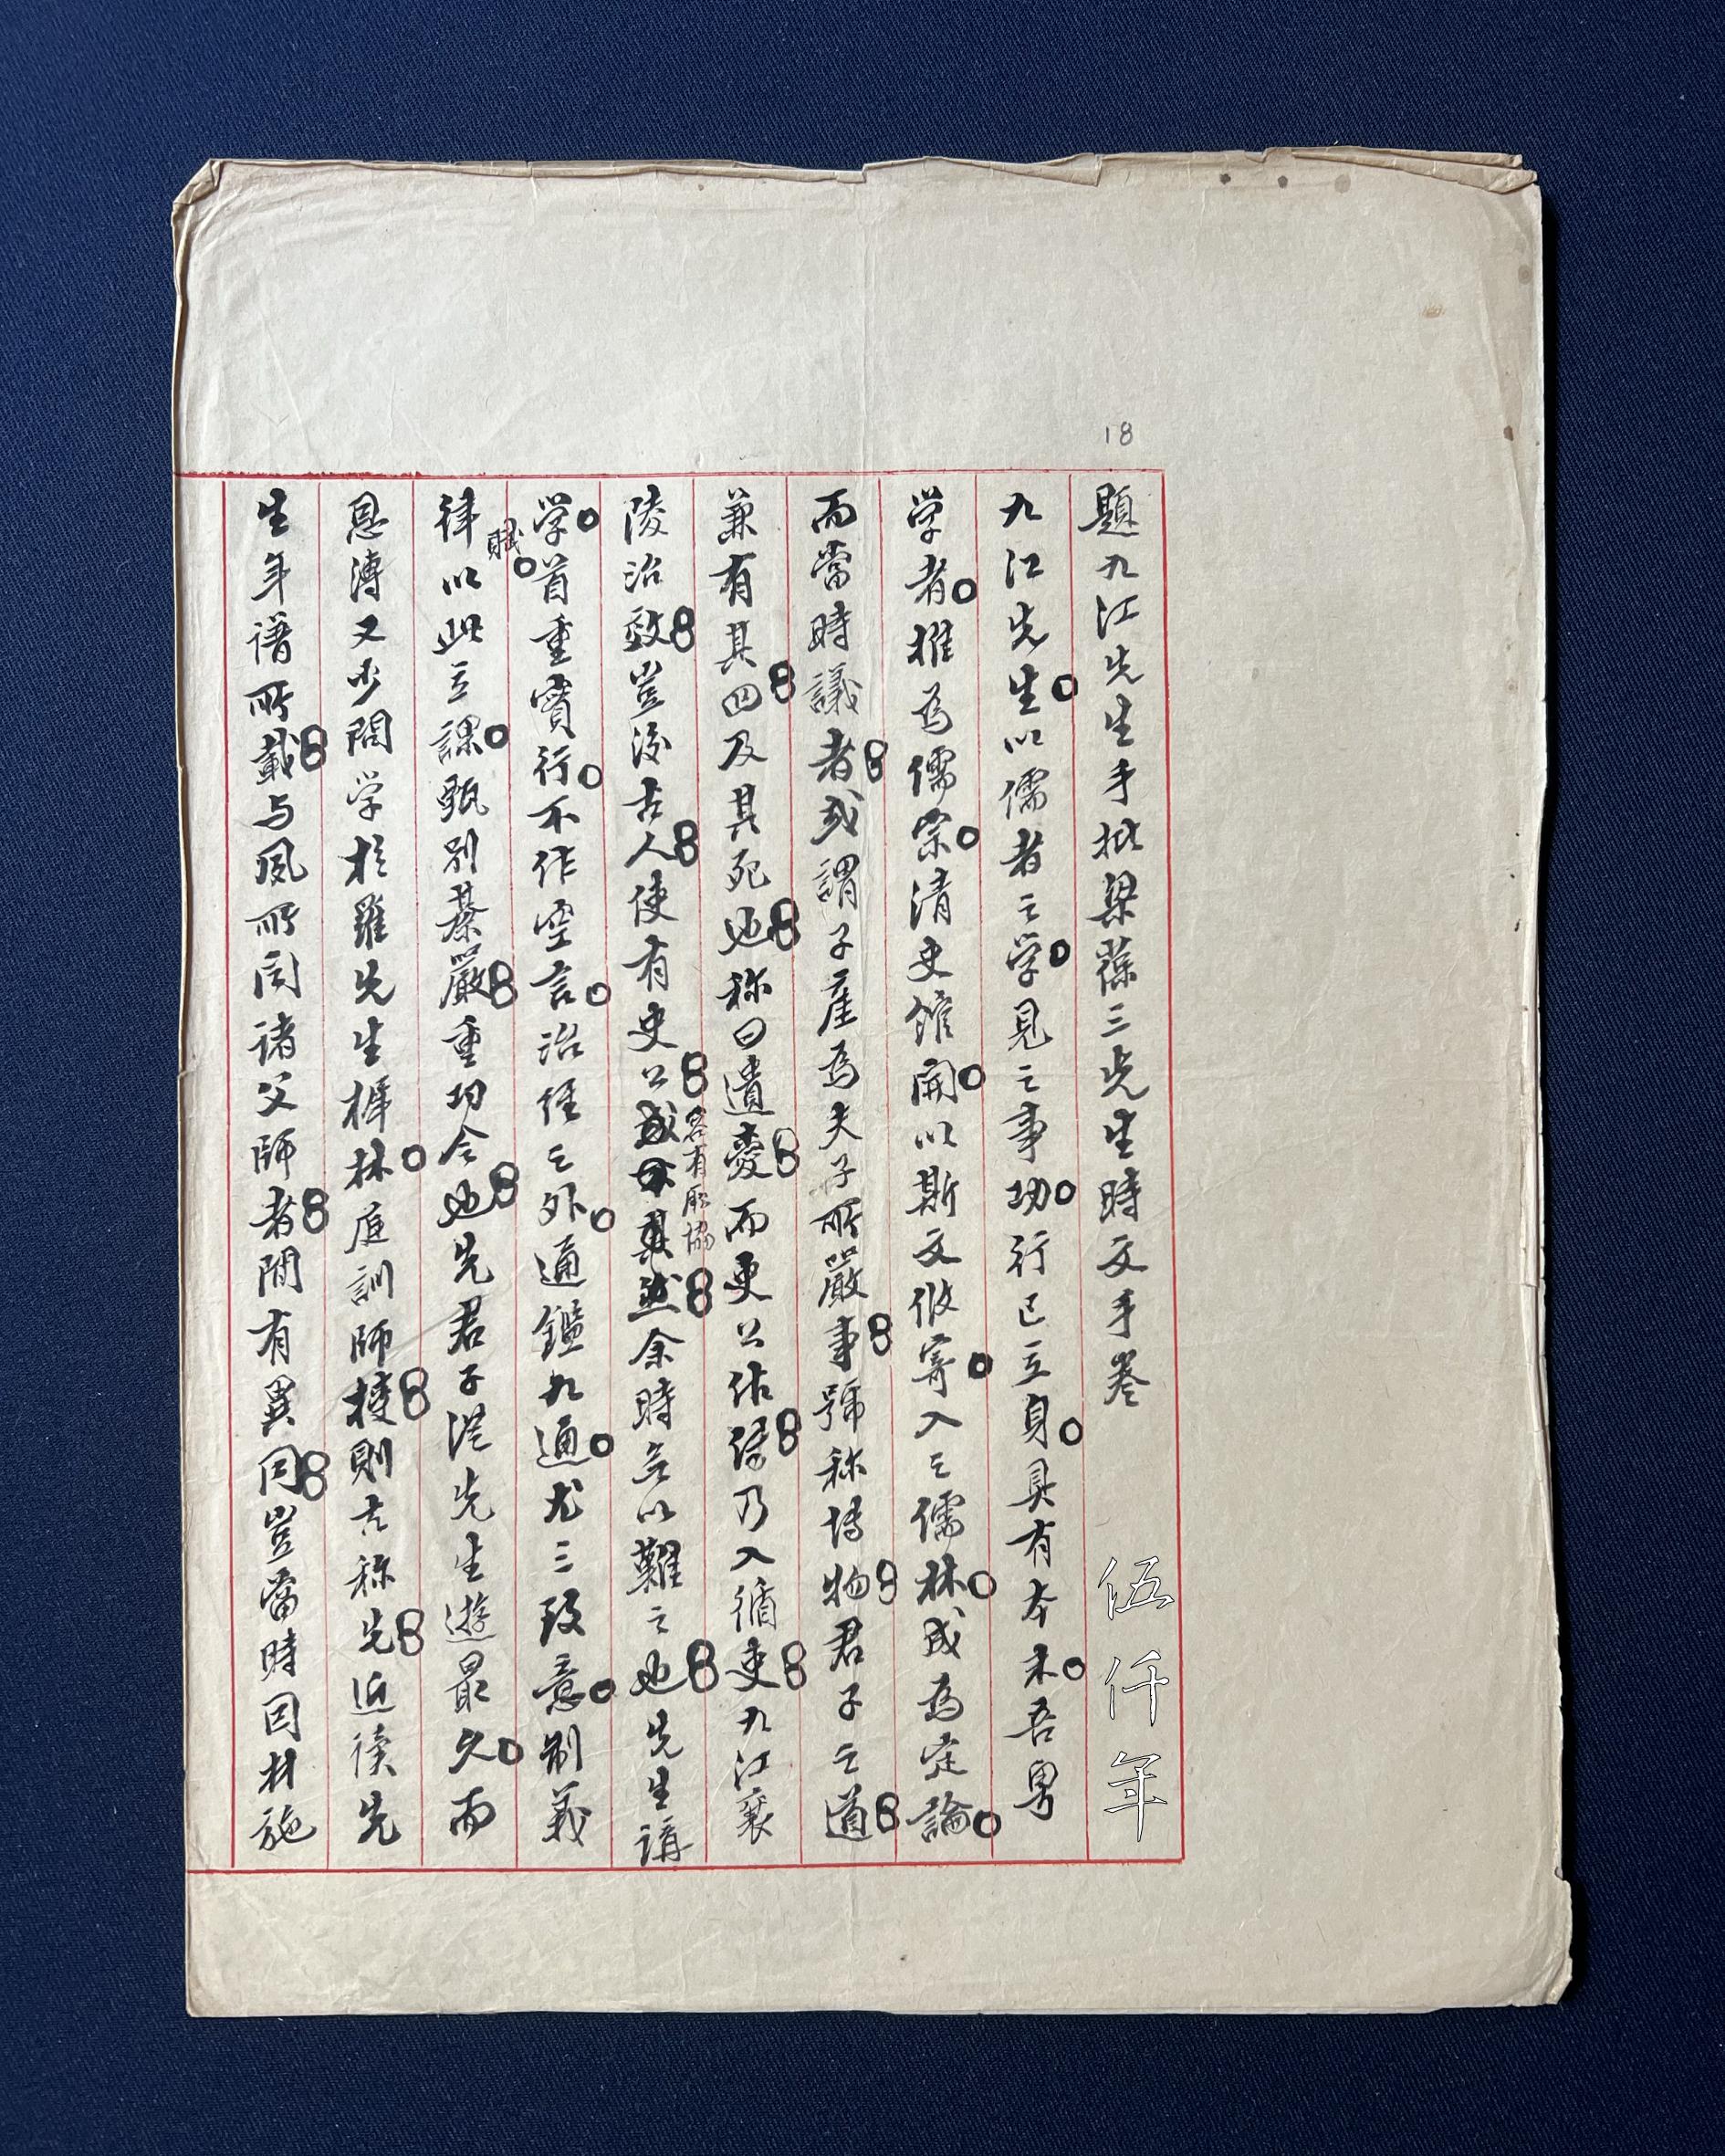 18
題九江先生手批梁葆三先生時文手卷
伍仟年
九江先生以儒者之学見之事功行已立身具有本末吾粤
学者推為儒宗清史館開以斯文攸寄入之儒林成為定論
而當時議者或謂子產為夫子所嚴事號称博物君子之道
兼有其四及其死也称曰遺愛而史公作傳乃入循吏九江襄
陵治效豈後古人使有史公
客有
協
余時無以難之也先生講
学首重實行不作空言治经之外通鑑九通尤三致意制義
賦
律以此立課甄别綦嚴重功令也先君子從先生遊最久而
恩溥又少問学於羅先生樨林庭訓師
則古称先近讀先
生年譜所載与夙所聞諸父師者間有異同豈當時因材施